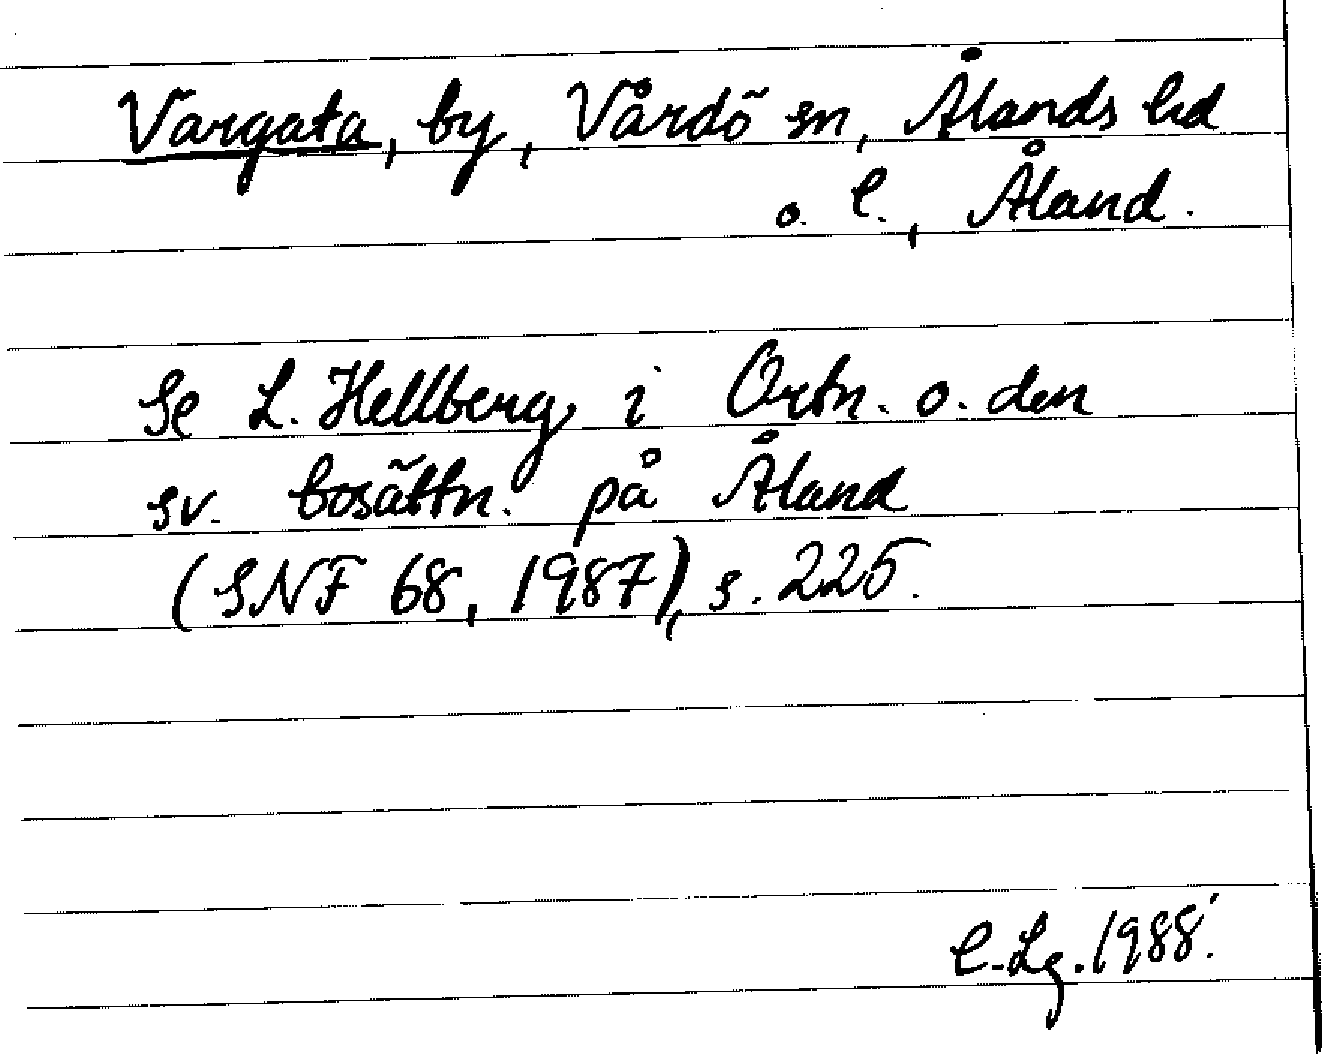 Vargata, by, Vårdö sn, Ålands hd
o. l., Åland.
Se L. Hellberg i Ortn. o. den
sv. bosättn. på Åland
(SNF 68, 1987), s. 225.
C-Lg. 1988.